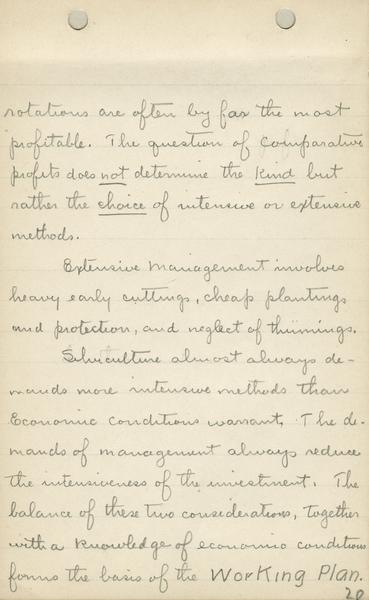 rotations are often by far the most
profitable. The question of comparative
profits does not determine the kind but
rather the choice of intensive or extensive
methods.
Extensive management involves
heavy early cuttings, cheap plantings
and protection, and neglect of thinnings.
Silviculture almost always de-
mands more intensive methods than
Economic conditions warrant. The de-
mands of management always reduce
the intensiveness of the investment. The
balance of these two considerations, together
with a knowledge of economic conditions
forms the basis of the Working Plan.
20